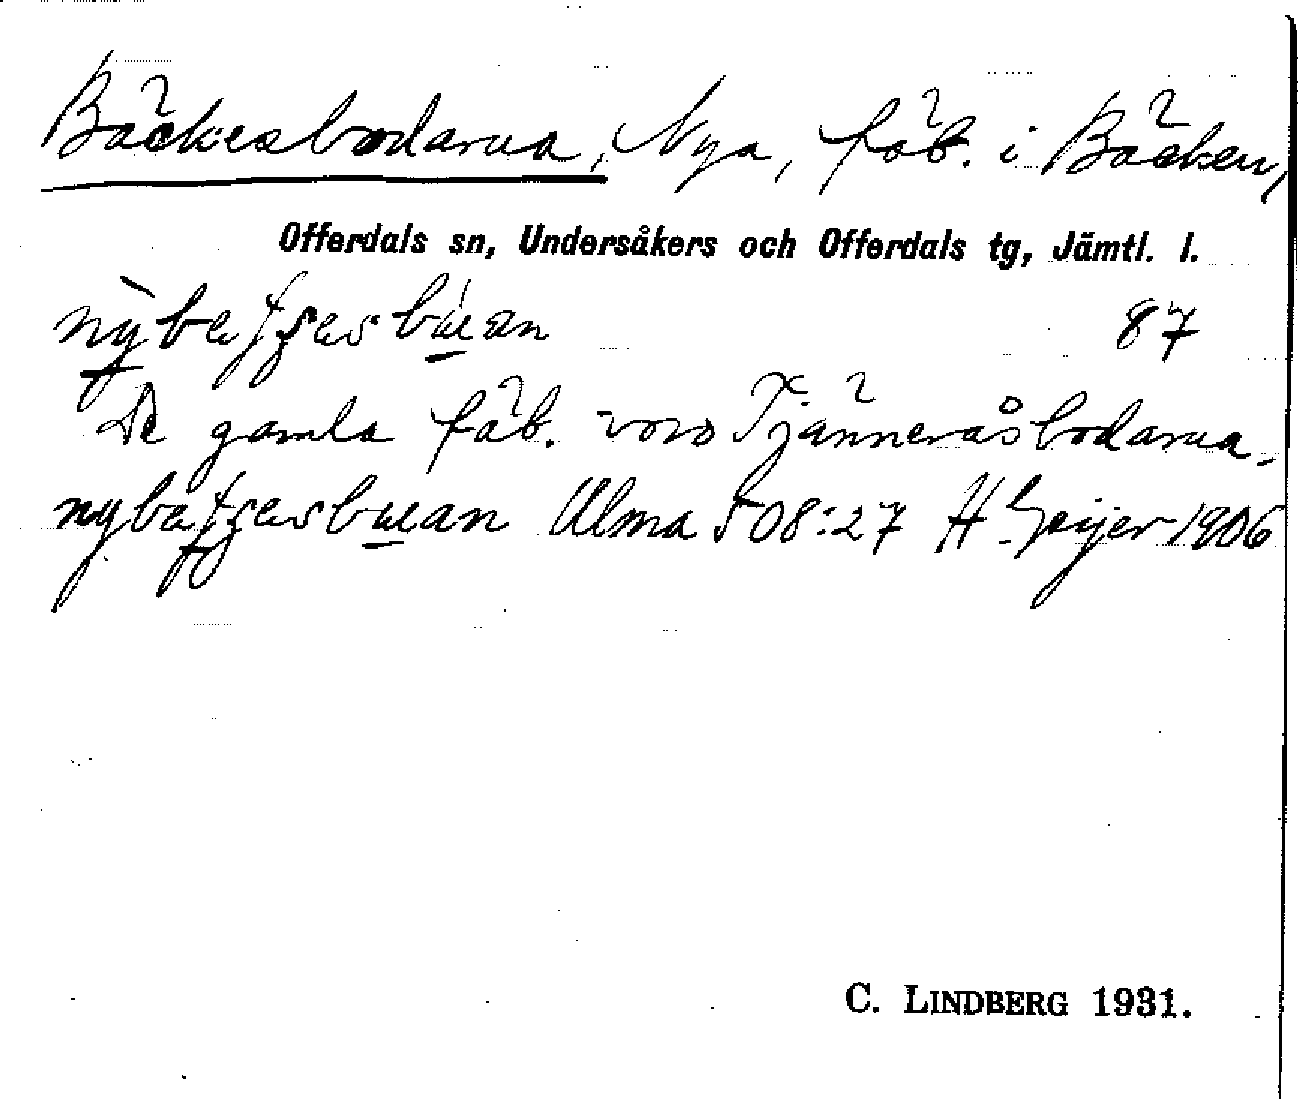 Bäckesbodarna, Nya, fäb. i Bäcken,
Offerdals sn, Undersåkers och Offerdals tg, Jämtl. l.
87
De gamla fäb. voro Tjänneråsbodarna.
Ulma 508:27 H Geijer 1906
C. LINDBERG 1931.